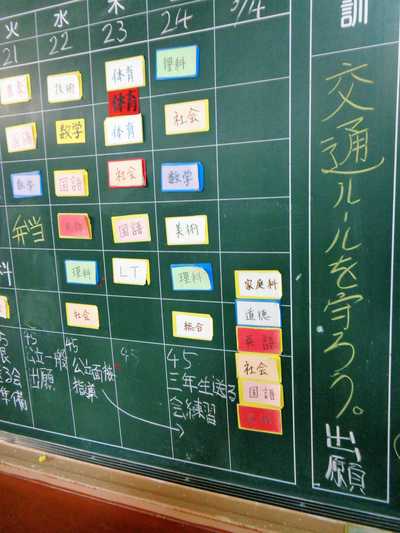 火 水 木 24 3/4
21 22 23
技術 体育 理科
体育
数学 体育 社会
数学 国語 社会 数学
弁当 国語 美術
理科 LT 理科 家庭科
道徳
社会 総合 英語
社会
国語
45
公立一般
出願
45
公立面接
指導
45
45
三年生送る
会練習
準備
訓
交通ルールを守ろう。
出願